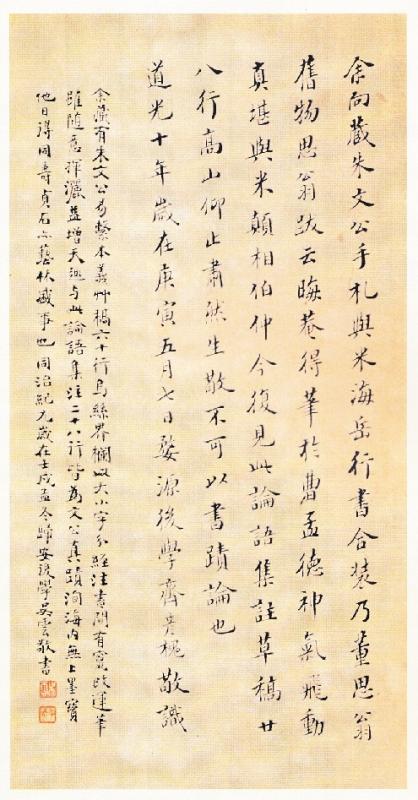 余向藏朱文公手札與米海岳行書合裝乃董思翁
舊物思翁跋云晦菴得筆於曹孟德神氣飛動
真堪與米顛相伯仲今復見此論語集註草稿廿
八行高山仰止肅然生敬不可以書蹟論也
道光十年歲在庚寅五月七日婺源後學齊彥槐敬識
余藏有朱文公易繫本義艸槁六十行烏絲界欄以大小字分經注書間有竄改運筆
雖隨意揮灑益增天趣与此論語集注二十八行皆為文公真蹟洵海內無上墨寶
他日得同壽貞石亦藝林盛事也同治紀元歲在壬戌孟冬歸安後學吳雲敬書